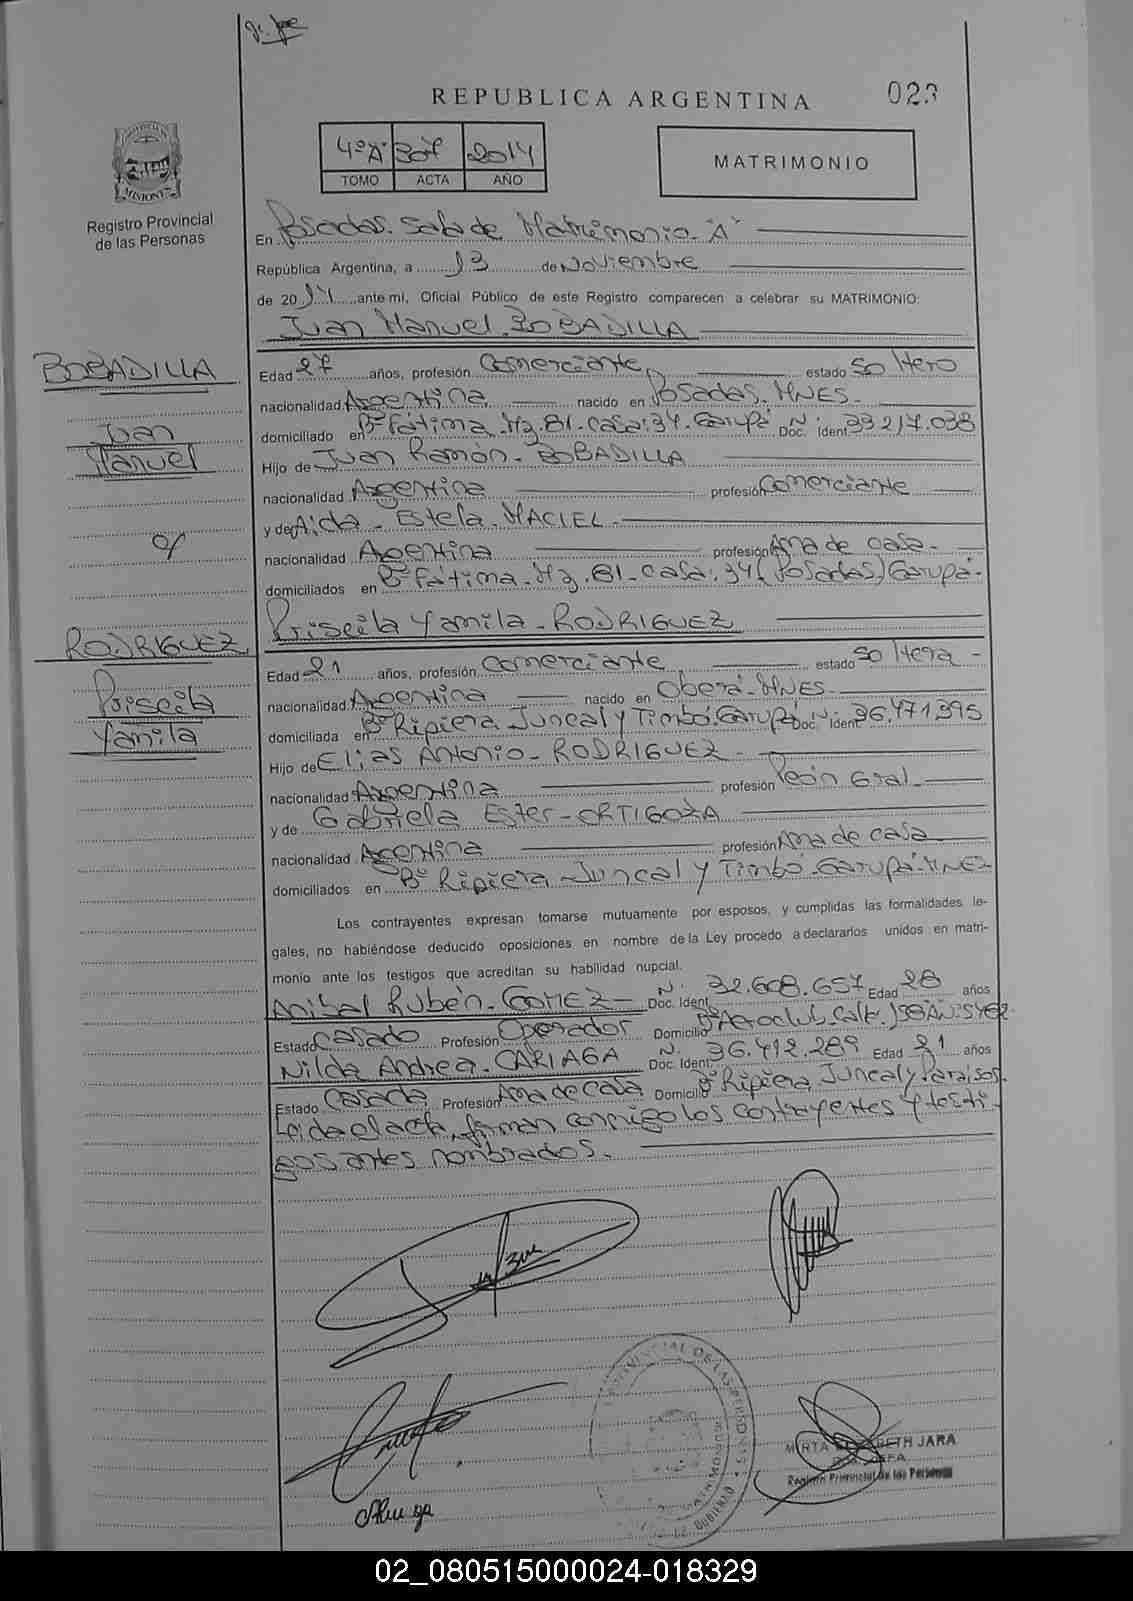 REPUBLICA ARGENTINA
023
4º "A" 307 2014
TOMO ACTA AÑO
MATRIMONIO
MISIONES
Registro Provincial
de las Personas
En Posadas. Sala de Matrimonio "A"
República Argentina, a 13 de Noviembre
de 2014 ante mi, Oficial Público de este Registro comparecen a celebrar su MATRIMONIO:
Juan Manuel BOBADILLA
BOBADILLA
Juan
Manuel
c/
RODRIGUEZ
Priscila
Yamila
Edad 27 años, profesión Comerciante estado Soltero
nacionalidad Argentina nacido en Posadas. MNES.
domiciliado en Bº Fátima. Mz. 81. Casa: 34. Garupá Doc. Ident. Nº: 33.217.038
Hijo de Juan Ramón. BOBADILLA
nacionalidad Argentina profesión Comerciante
y de Aida. Estela. MACIEL.
nacionalidad Argentina profesión Ama de casa.
domiciliados en Bº Fátima. Mz. 81. Casa: 34 (Posadas) Garupá.
Priscila Yamila. RODRIGUEZ
Edad 21 años, profesión Comerciante estado Soltera
nacionalidad Argentina nacido en Oberá. MNES.
domiciliada en Bº Ripiera Juncal y Timbó. Garupá Doc. Ident. Nº: 36.471.395
Hijo de Elias Antonio. RODRIGUEZ
nacionalidad Argentina profesión Peón Gral.
y de Gabriela Ester. ORTIGOZA
nacionalidad Argentina profesión Ama de casa
domiciliados en Bº Ripiera Juncal y Timbó. Garupá. MNES
Los contrayentes expresan tomarse mutuamente por esposos, y cumplidas las formalidades le-
gales, no habiéndose deducido oposiciones en nombre de la Ley procedo a declararlos unidos en matri-
monio ante los testigos que acreditan su habilidad nupcial.
Anibal Rubén. GOMEZ Doc. Ident. Nº: 32.608.657 Edad 28 años
Estado Casado Profesión Operador Domicilio Bº Aeroclub.
Nilda Andrea. CARIAGA Doc. Ident. Nº: 36.412.289 Edad 21 años
Estado Casada Profesión Ama de casa Domicilio Bº Ripiera Juncal y Paraisos.
Leida el acta, firman conmigo los contrayentes y testi-
gos antes nombrados.
PROVINCIAL DE LAS PERSONAS
MIRTA ELIZABETH JARA
Registro Provincial de las Personas
02_080515000024-018329